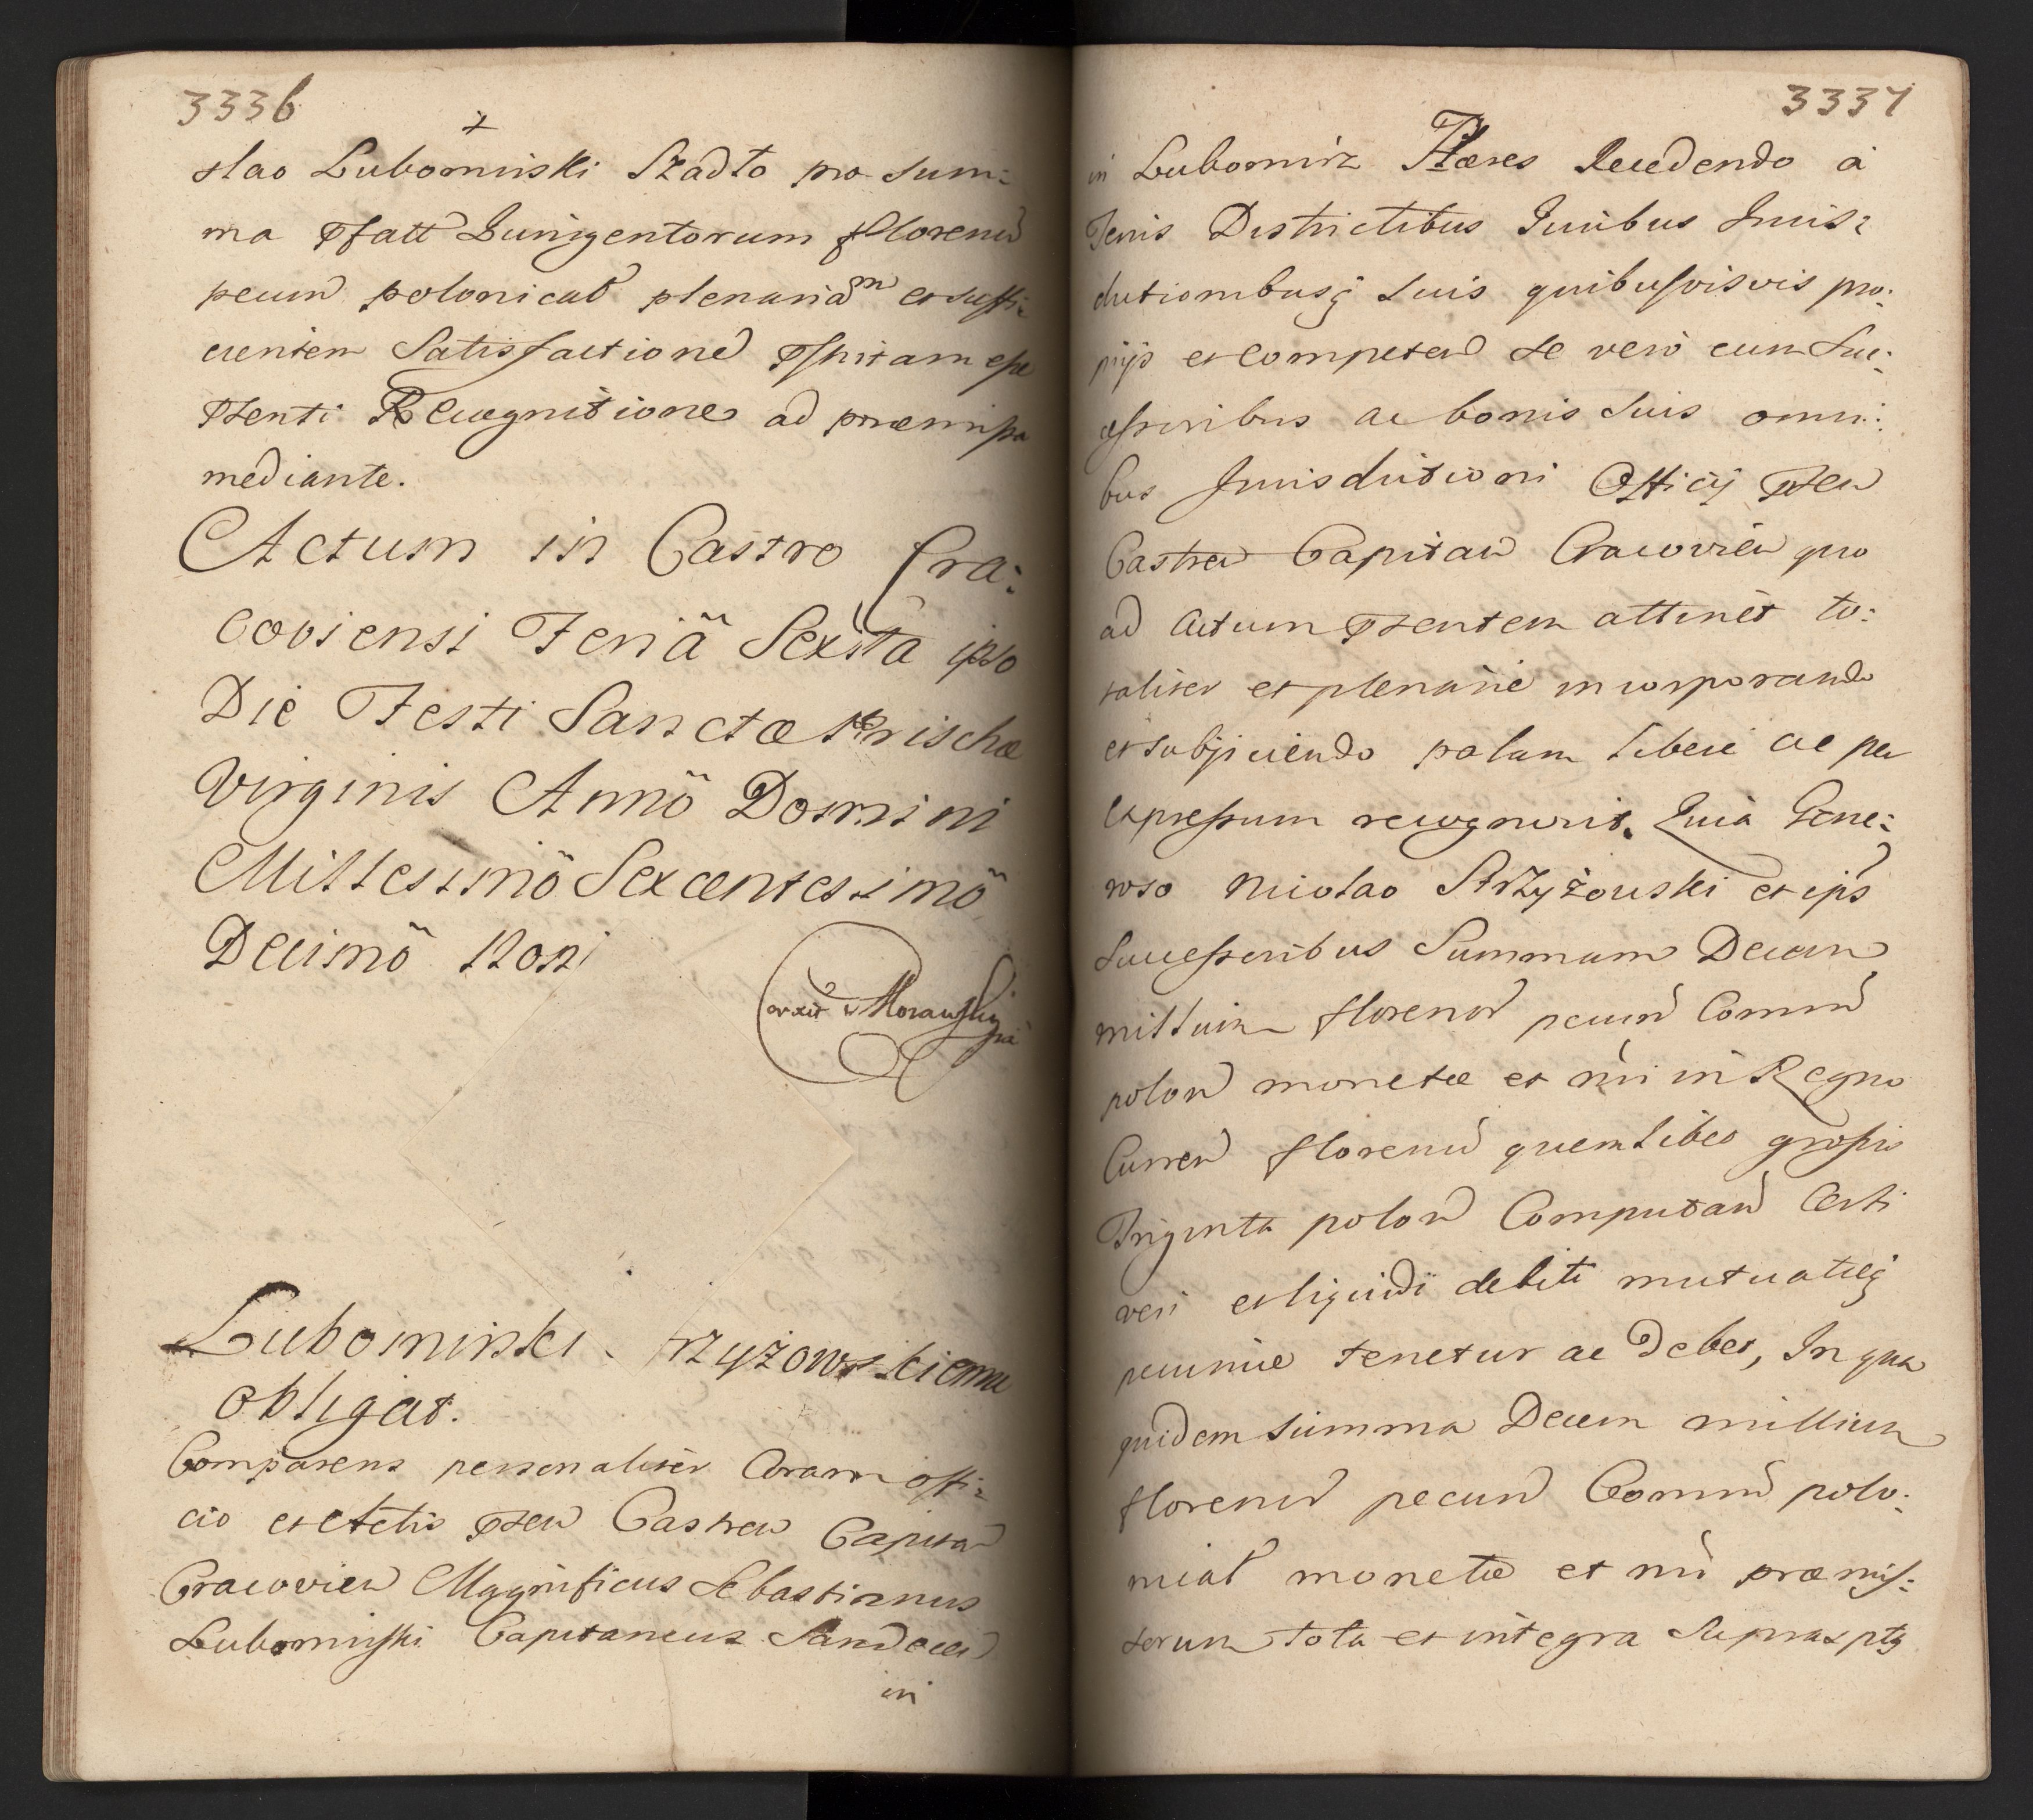 3336
slao Lubomirski Stadto pro sum:
ma Pfatt Quingentorum florenu
pecun polonical plenaria m et suffi:
cientem Satisfactione esse
Psenti Recognitione ad præmissa
mediante.
Actum in Castro Cra:
coviensi Feriâ Sexta ipso
Die Festi Sanctæ Prischæ
Virginis Annô Domini
Millesimô Sexcentesimô
Decimô Noni
Lubomirski
obligat.
Comparens personaliter Coram offi:
cio et Actis Psen Castren Capitan
Cracovien Magnificus Sebastianus
Lubomirski Capitaneus Sandecen
in
3337
in Lubomirz Hæres Recedendo à
Terris Districtibus Juribus Juris:
dictionibusq suis quibusvisvis pro:
prijs et Competen se verò cum Suc:
cessoribus ac bonis suis omni:
bus Jurisdictioni Officij Psen
Castren Capitan Cracovien quo
ad actum Psentem attinet to:
taliter et plenarie incorporando
et subjiciendo palam libere ac per
expressum recognovit. Quia Gene:
roso Nicolao Strzyżowski et ips
Successoribus Summam Decem
millium florenor pecun Comun
polon monetæ et nri in Regno
Curren florenu quemlibet grossis
Triginta polon Computan Certi
veri et liquidi debiti mutuatæq
pecuniæ tenetur ac Debet, In qua
quidem summa Decem millium
florenor pecun Comun polo:
nical monetæ et nri præmis:
sorum tota et integra Suprascpta